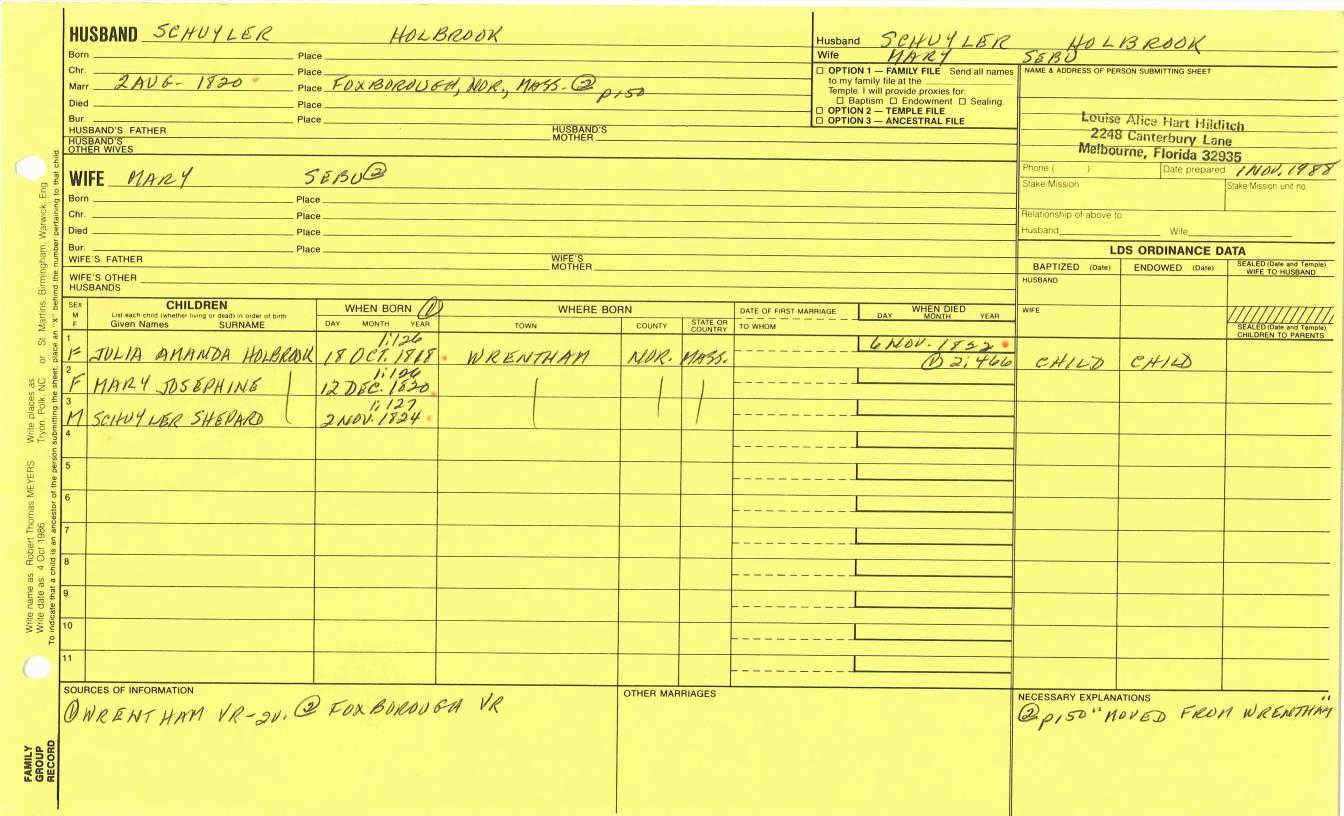 HUSBAND SCHUYLER HOLBROOK
Born Place
Chr. Place
Marr 2 AUG- 1820 Place FOXBOROUGH, NOR., MASS. ② p150
Died Place
Bur. Place
HUSBAND'S FATHER HUSBAND'S MOTHER
HUSBAND'S OTHER WIVES
Husband SCHUYLER HOLBROOK
Wife MARY SEBU
☐ OPTION 1 — FAMILY FILE Send all names
to my family file at the
Temple. I will provide proxies for:
☐ Baptism ☐ Endowment ☐ Sealing.
☐ OPTION 2 — TEMPLE FILE
☐ OPTION 3 — ANCESTRAL FILE
NAME & ADDRESS OF PERSON SUBMITTING SHEET
Louise Alice Hart Hilditch
2248 Canterbury Lane
Melbourne, Florida 32935
Phone ( ) Date prepared 1 NOV, 1988
Stake/Mission Stake/Mission unit no.
Relationship of above to:
Husband Wife
WIFE MARY SEBU ②
Born Place
Chr. Place
Died Place
Bur. Place
WIFE'S FATHER WIFE'S MOTHER
WIFE'S OTHER HUSBANDS
LDS ORDINANCE DATA
BAPTIZED (Date) ENDOWED (Date) SEALED (Date and Temple) WIFE TO HUSBAND
HUSBAND
WIFE
SEALED (Date and Temple) CHILDREN TO PARENTS
SEX M F CHILDREN WHEN BORN ① WHERE BORN DATE OF FIRST MARRIAGE WHEN DIED
List each child (whether living or dead) in order of birth
Given Names SURNAME DAY MONTH YEAR TOWN COUNTY STATE OR COUNTRY TO WHOM DAY MONTH YEAR
1 1:126 6 NOV. 1822
F JULIA AMANDA HOLBROOK 18 OCT. 1818 WRENTHAM NOR. MASS. ① 2:466 CHILD CHILD
2 1:126
F MARY JOSEPHINE 12 DEC. 1820
3 1:127
M SCHUYLER SHEPARD 2 NOV. 1824
4
5
6
7
8
9
10
11
SOURCES OF INFORMATION
① WRENTHAM VR-2v. ② FOXBOROUGH VR
OTHER MARRIAGES
NECESSARY EXPLANATIONS
② p150 "MOVED FROM WRENTHAM"
Write name as: Robert Thomas MEYERS Write places as: Tryon, Polk, NC or St. Martins, Birmingham, Warwick, Eng
Write date as: 4 Oct 1986
To indicate that a child is an ancestor of the person submitting the sheet, place an "X" behind the number pertaining to that child.
FAMILY
GROUP
RECORD